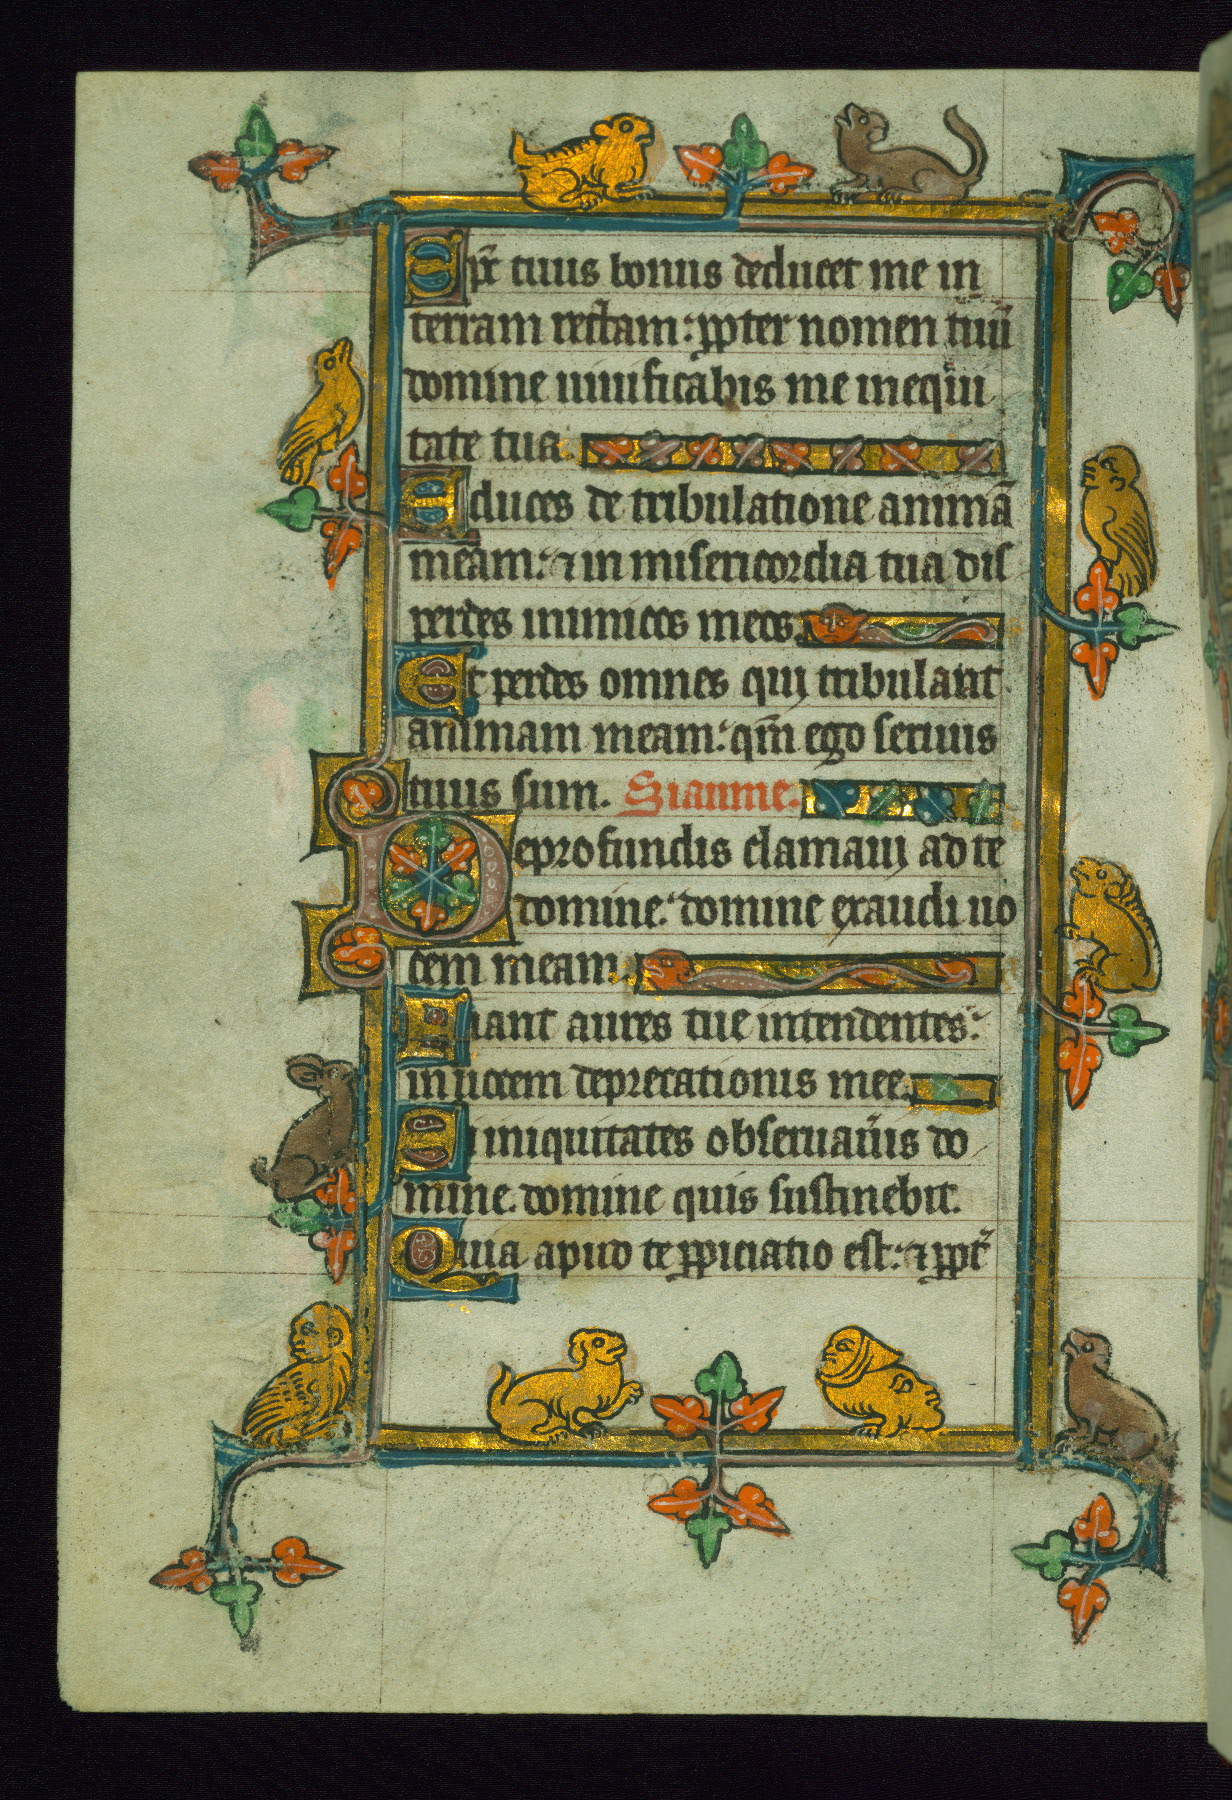 Spc̄ tuus bonus deducet me in
terram rectam: ꝓpter nomen tuū
domine uiuificabis me inequi
tate tua.
Educes de tribulatione animā
meam: ⁊ in misericordia tua dis
perdes inimicos meos.
Et perdes omnes qui tribulant
animam meam: qm̄ ego seruus
tuus sum. Siaume.
Deprofundis clamaui ad te
domine: domine exaudi uo
cem meam.
Fiant aures tue intendentes:
in uocem deprecationis mee.
Si iniquitates obseruau̾is do
mine. domine quis sustinebit.
Quia apud te ꝓpiciatio est: ⁊ ꝓpt̾